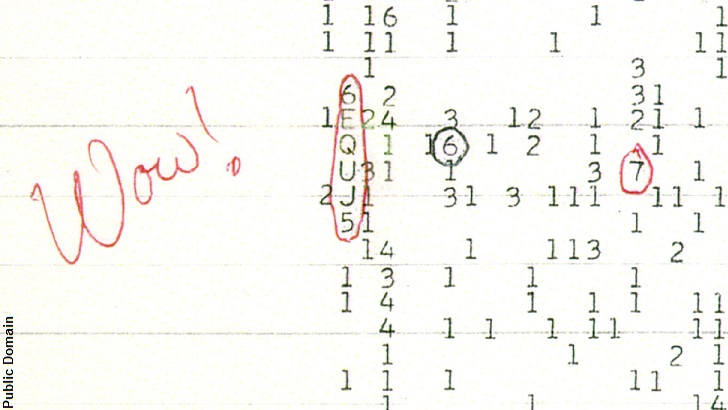 1 16 1 1 1
1 11 1 1 11
1 3 1
6 2 31
1 E 24 3 12 1 21 1
Wow!
Q 1 16 1 2 1 1
U 31 1 3 7 1
2 J 1 31 3 111 11 1
51 1 1
14 1 113 2
1 3 1 1 1
1 4 1 1 1 11
4 1 1 1 11 11
1 1 2 1
1 1 1 11 1
1 1 14
Public Domain